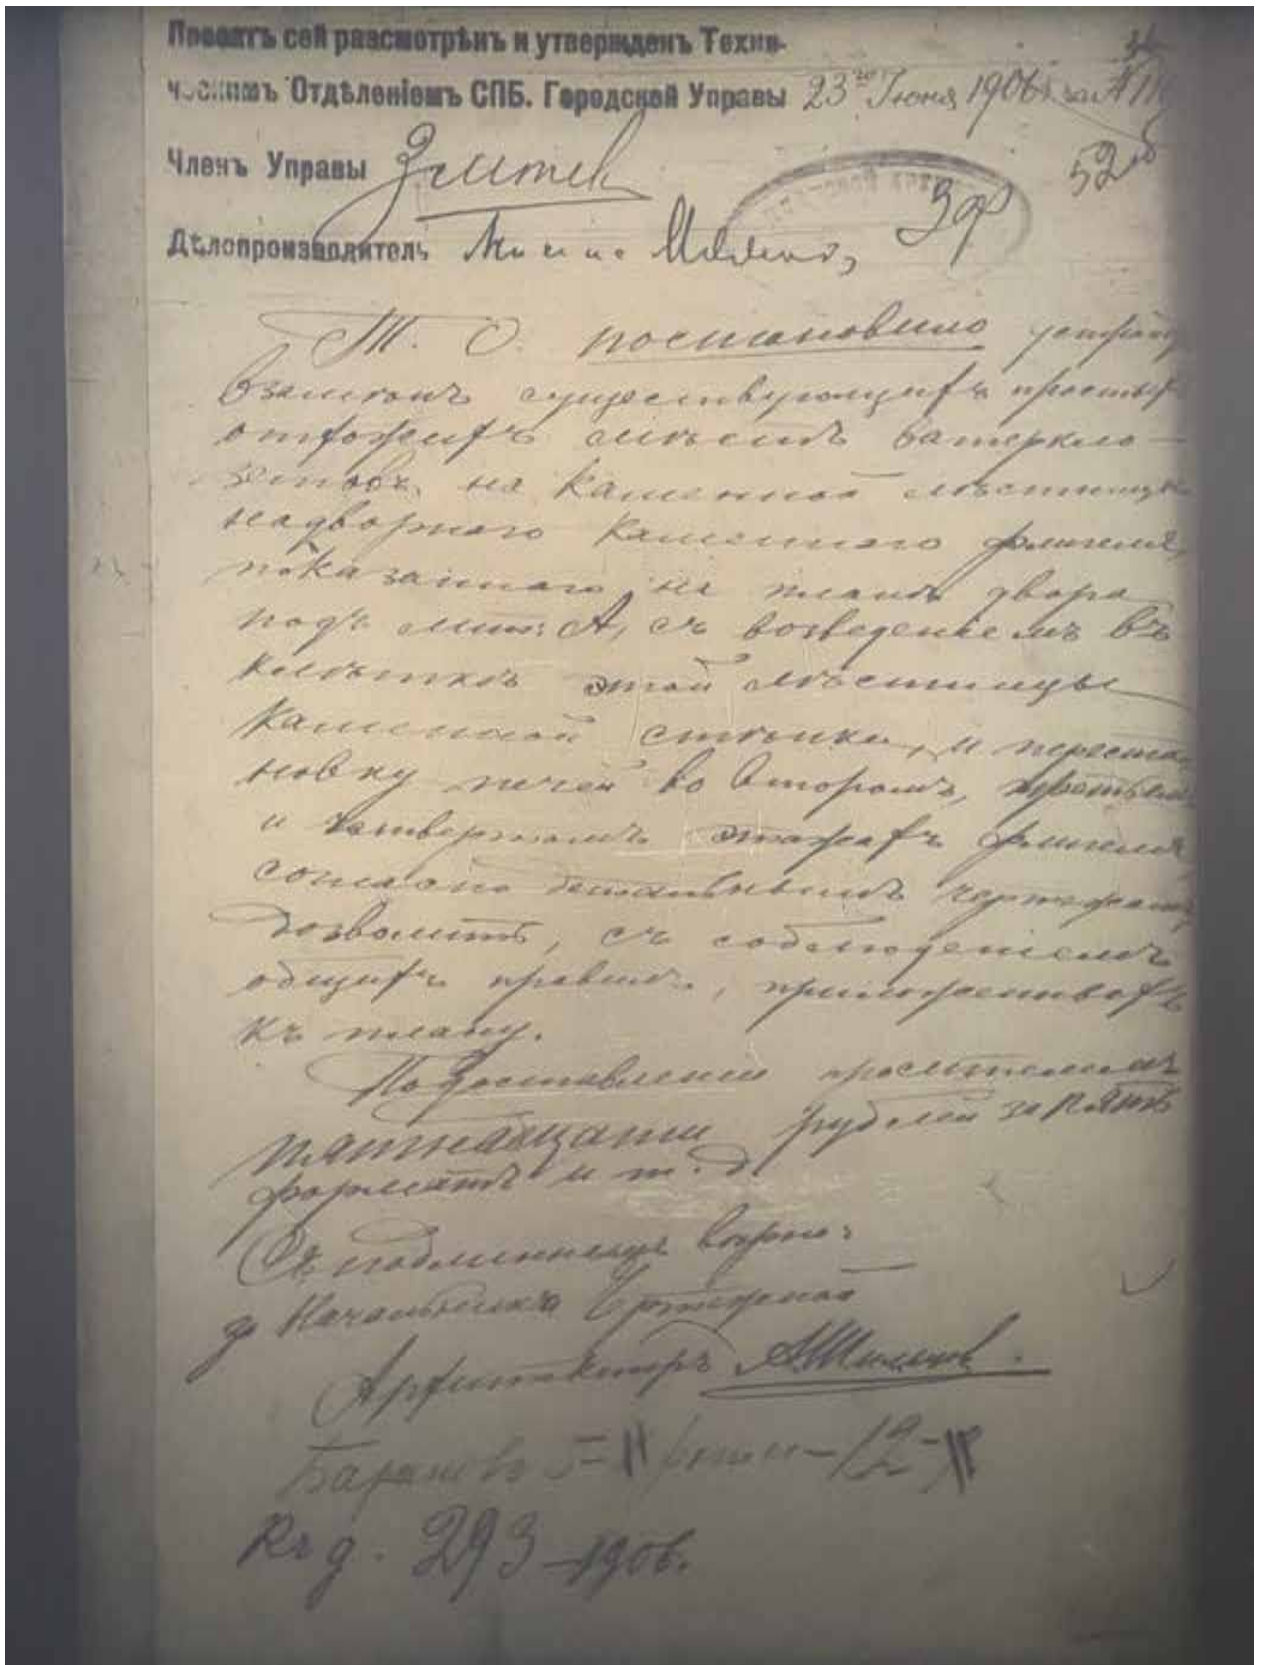 Проектъ сей разсмотрѣнъ и утвержденъ Техни-
ческимъ Отдѣленіемъ СПБ. Городской Управы 23го Іюня 1906 г. за №
52
Членъ Управы
39
Дѣлопроизводитель
Т. О. постановило: устройство
взамѣнъ существующихъ простыхъ
отхожихъ мѣстъ ватеркло-
зетовъ, на каменной лѣстницѣ
надворнаго каменнаго флигеля,
показаннаго на планѣ двора
подъ лит. А, съ возведеніемъ въ
клѣткѣ этой лѣстницы
каменной стѣнки, и переста-
новку печей во второмъ, третьемъ
и четвертомъ этажахъ флигеля,
согласно детальнымъ чертежамъ,
дозволить, съ соблюденіемъ
общихъ правилъ, приложенныхъ
къ плану.
По доставленіи просителемъ
пятнадцати рублей за пять
форматъ и т. д.
Съ подлиннымъ вѣрно:
за Начальника Чертежной
Архитекторъ
Къ д. 293 – 1906.